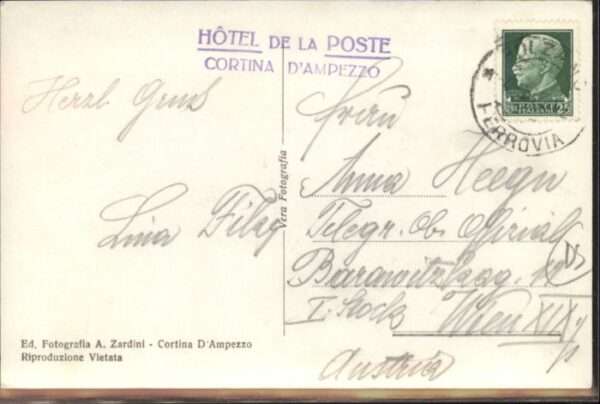 HÔTEL DE LA POSTE
CORTINA D'AMPEZZO
Herzl. Gruß
Lina
Vera Fotografia
Frau
Anna Heegn
Telegr. Ob. Offizial
I. Stock
Wien XIX
Austria
FERROVIA
Ed. Fotografia A. Zardini - Cortina D'Ampezzo
Riproduzione Vietata